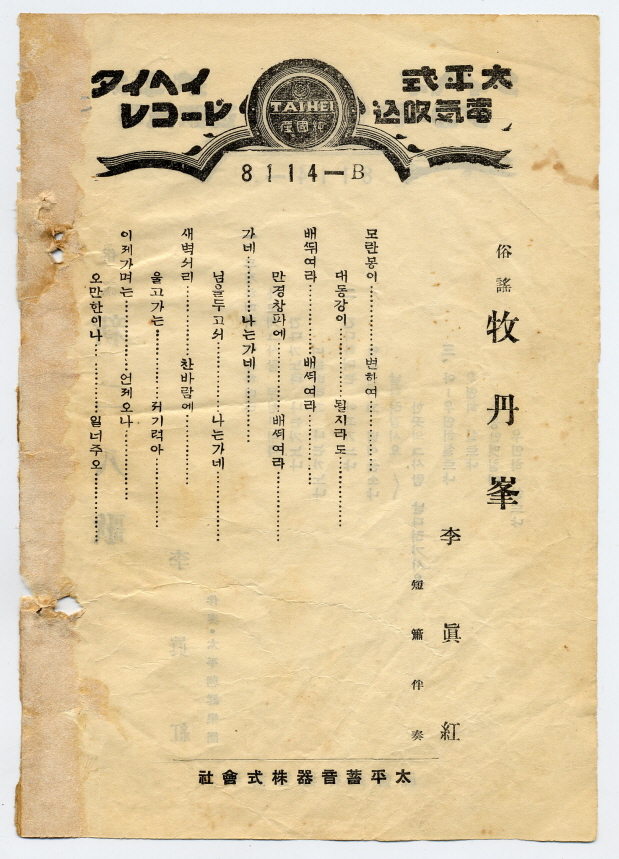 太平式
電気吹込
タイヘイ
レコード
TAIHEI
8114—B
俗謠
牧丹峯
李眞紅
短簫伴奏
모란봉이………변하여
대동강이………될지라도
만경창파에………
가네………나는가네………
님을두고서………나는가네
새벽서리………찬바람에
울고가는………저기럭아
이제가며는………언제오나
오만한이나………일너주오
太平蓄音器株式會社